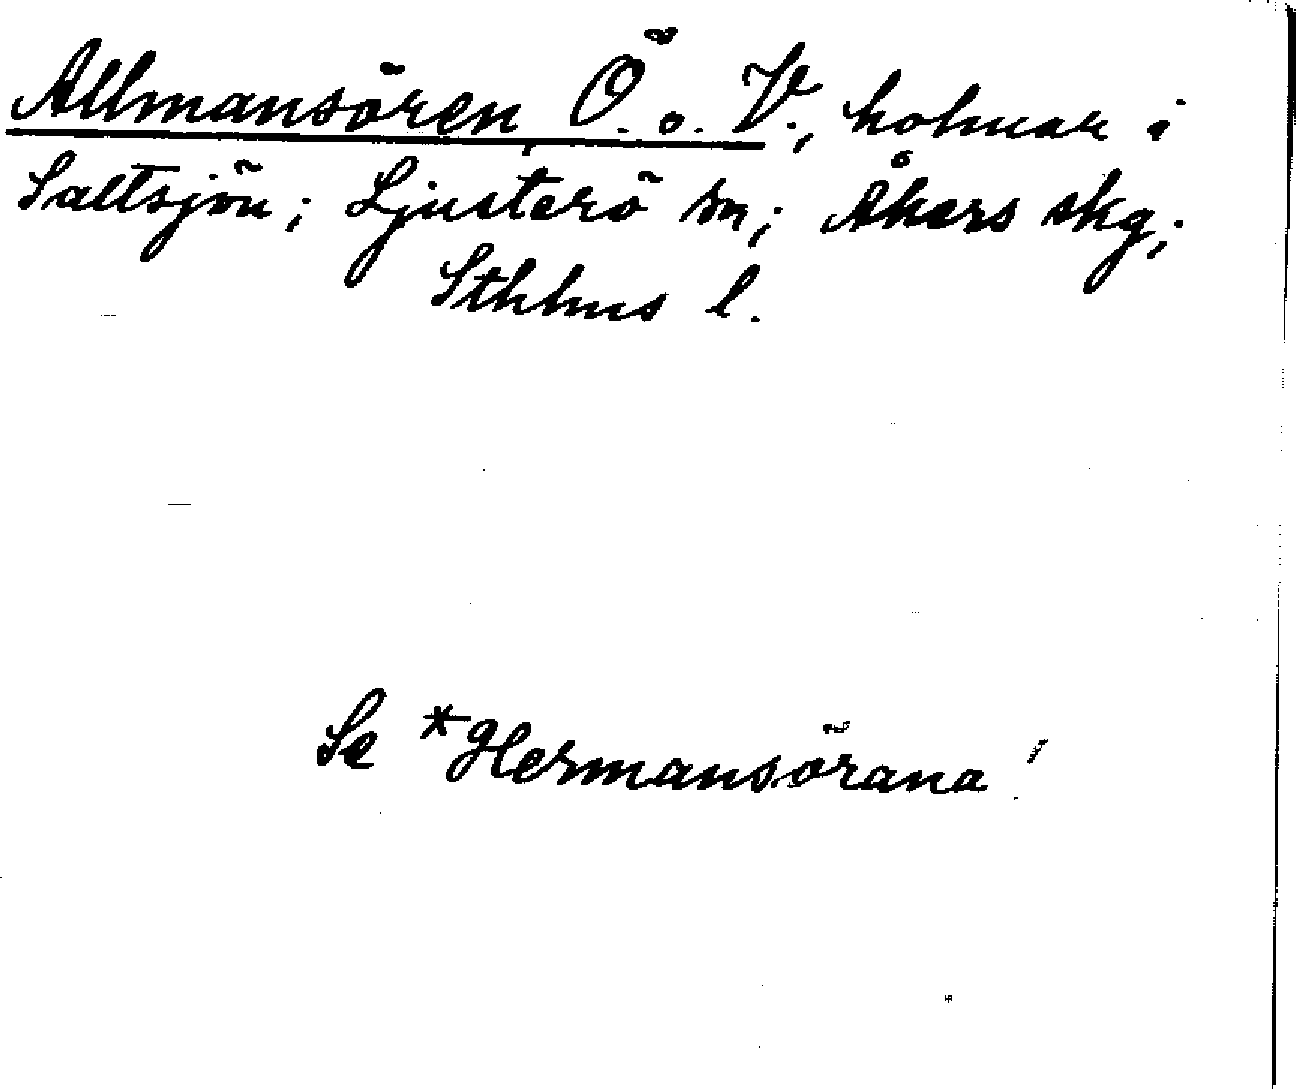 Allmansören, Ö. o. V., holmar i
Saltsjön; Ljusterö sn; Åkers skg;
Sthlms l.
Se *Hermansörana!